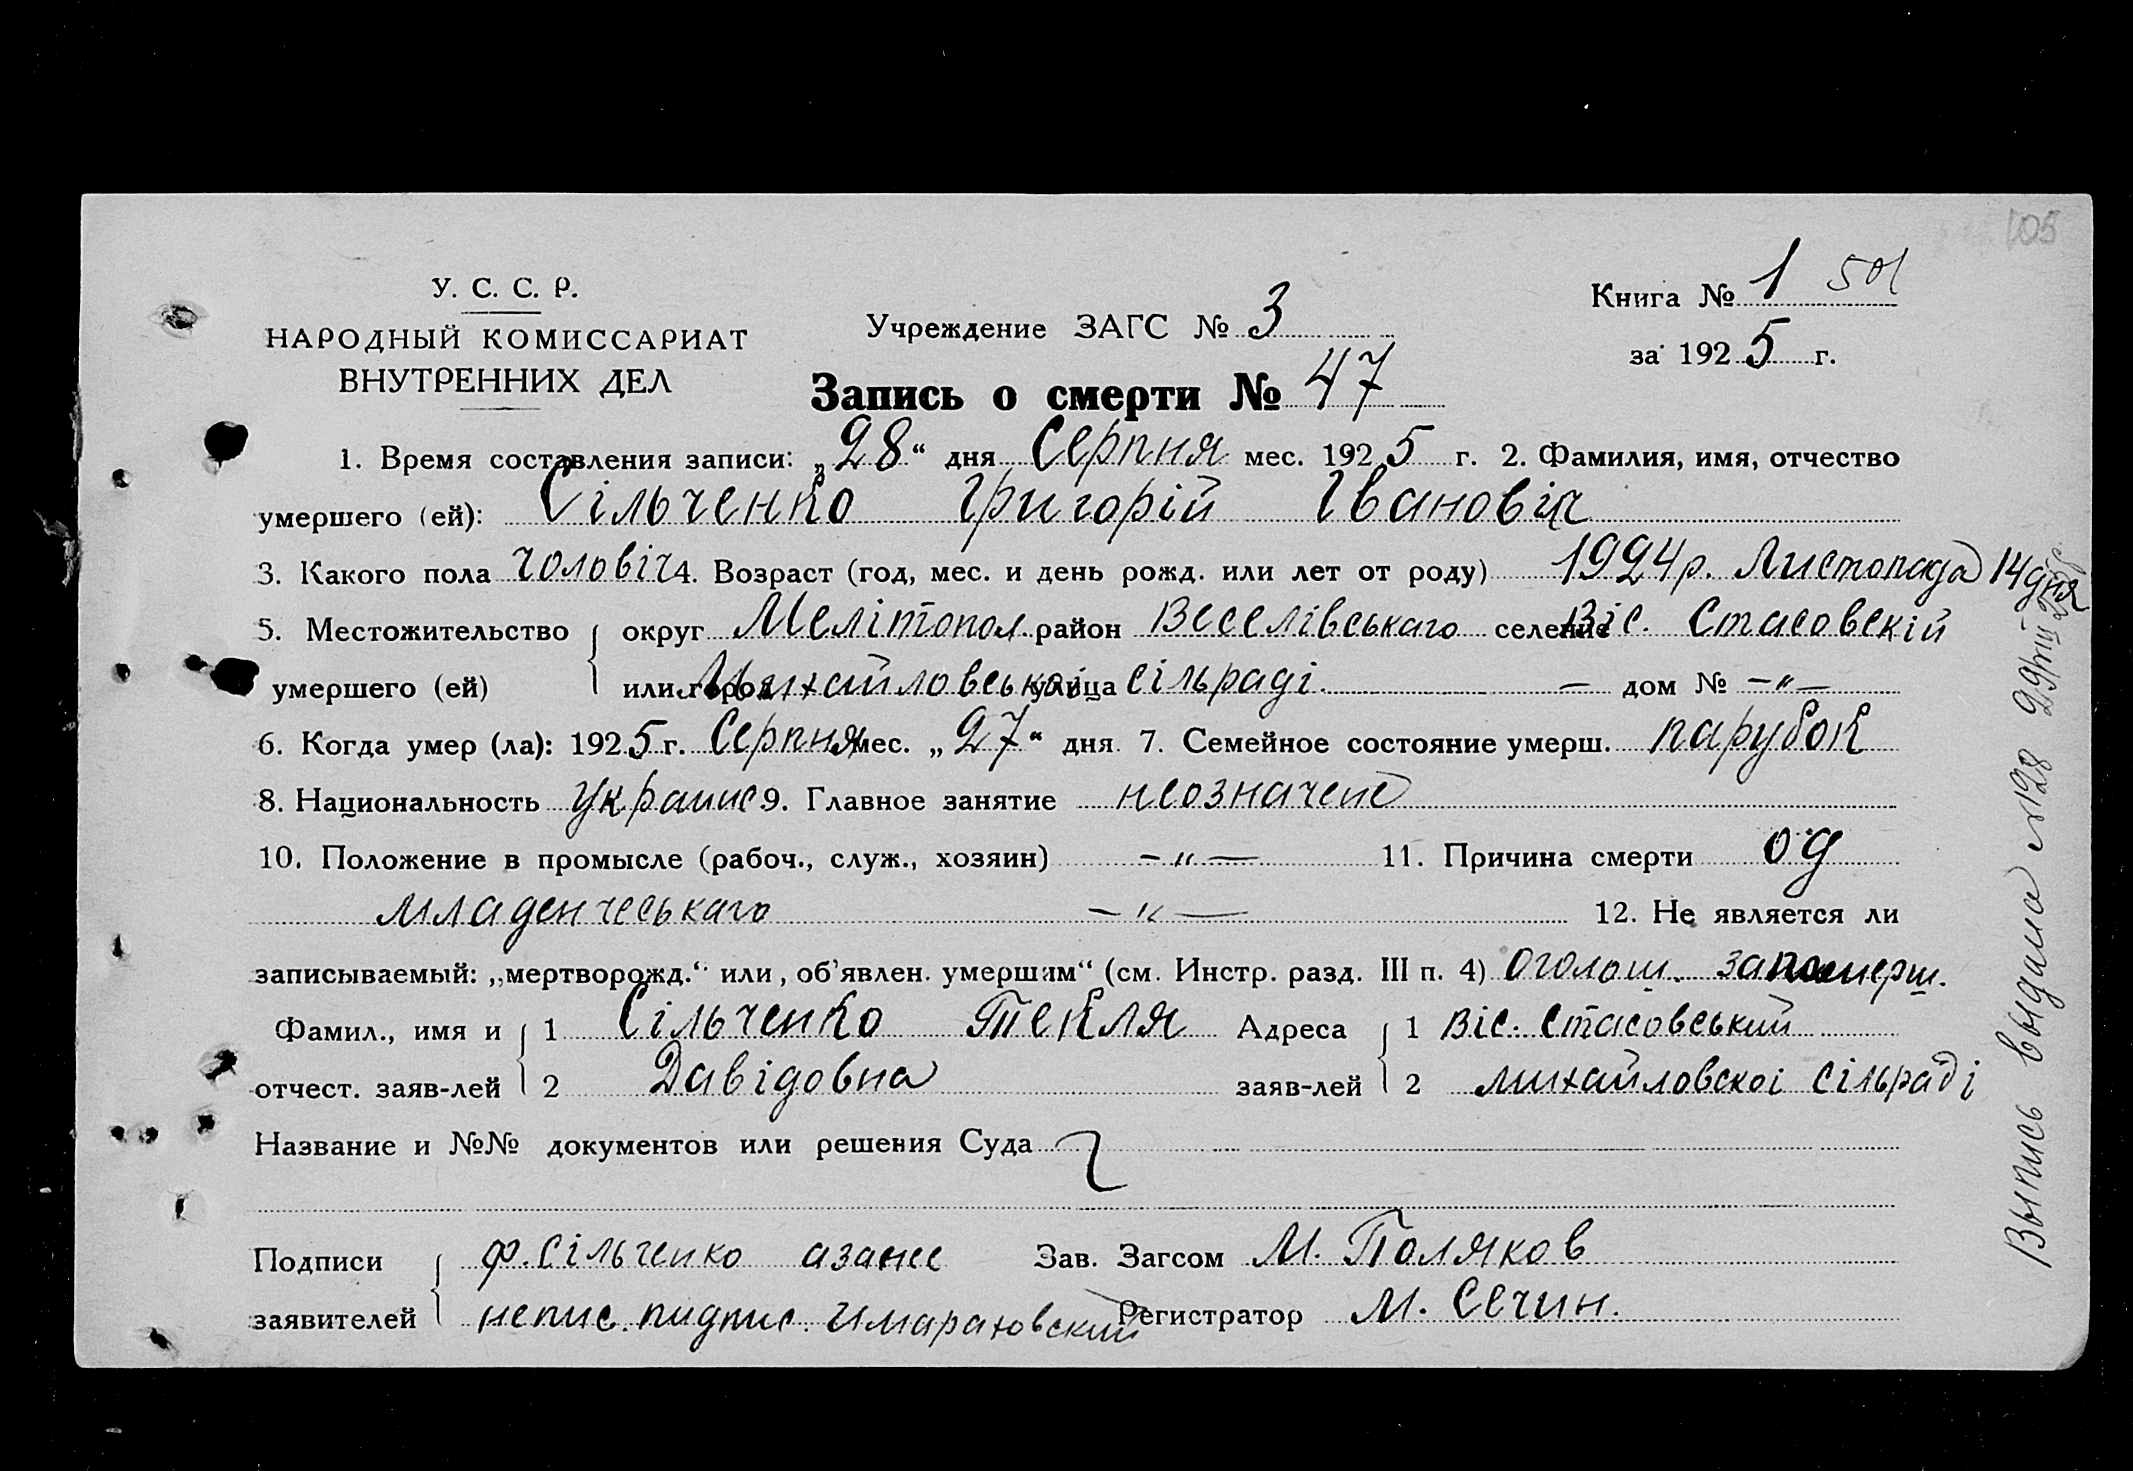 105
У. С. С. Р.
НАРОДНЫЙ КОМИССАРИАТ
ВНУТРЕННИХ ДЕЛ
Учреждение ЗАГС № 3
Книга № 1 501
за 1925 г.
Запись о смерти № 47
1. Время составления записи: „28“ дня Серпня мес. 1925 г. 2. Фамилия, имя, отчество
умершего (ей): Сільченко Григорій Івановіч
3. Какого пола чоловіч 4. Возраст (год, мес. и день рожд. или лет от роду) 1924р. Листопада 14 дня
5. Местожительство округ Мелітопол. район Веселівськаго селение Віс. Стасовскій
умершего (ей) или город Михайловськоі улица сільраді — дом № —„—
6. Когда умер (ла): 1925 г. Серпня мес. „27“ дня 7. Семейное состояние умерш. парубок
8. Национальность украинс 9. Главное занятие неозначене
10. Положение в промысле (рабоч., служ., хозяин) —„— 11. Причина смерти од
младенчеськаго —„— 12. Не является ли
записываемый: „мертворожд.“ или „об’явлен. умершим“ (см. Инстр. разд. III п. 4) оголош. запомерш.
Фамил., имя и 1 Сільченко Текля Адреса 1 Віс. Стасовський
отчест. заяв-лей 2 Давідовна заяв-лей 2 михайловскоі сільраді
Название и №№ документов или решения Суда
Подписи ф. Сільченко азанее Зав. Загсом М. Поляков
заявителей непис. пидпис. Регистратор М. Сечин.
Выпись выдана №128 29/VIII